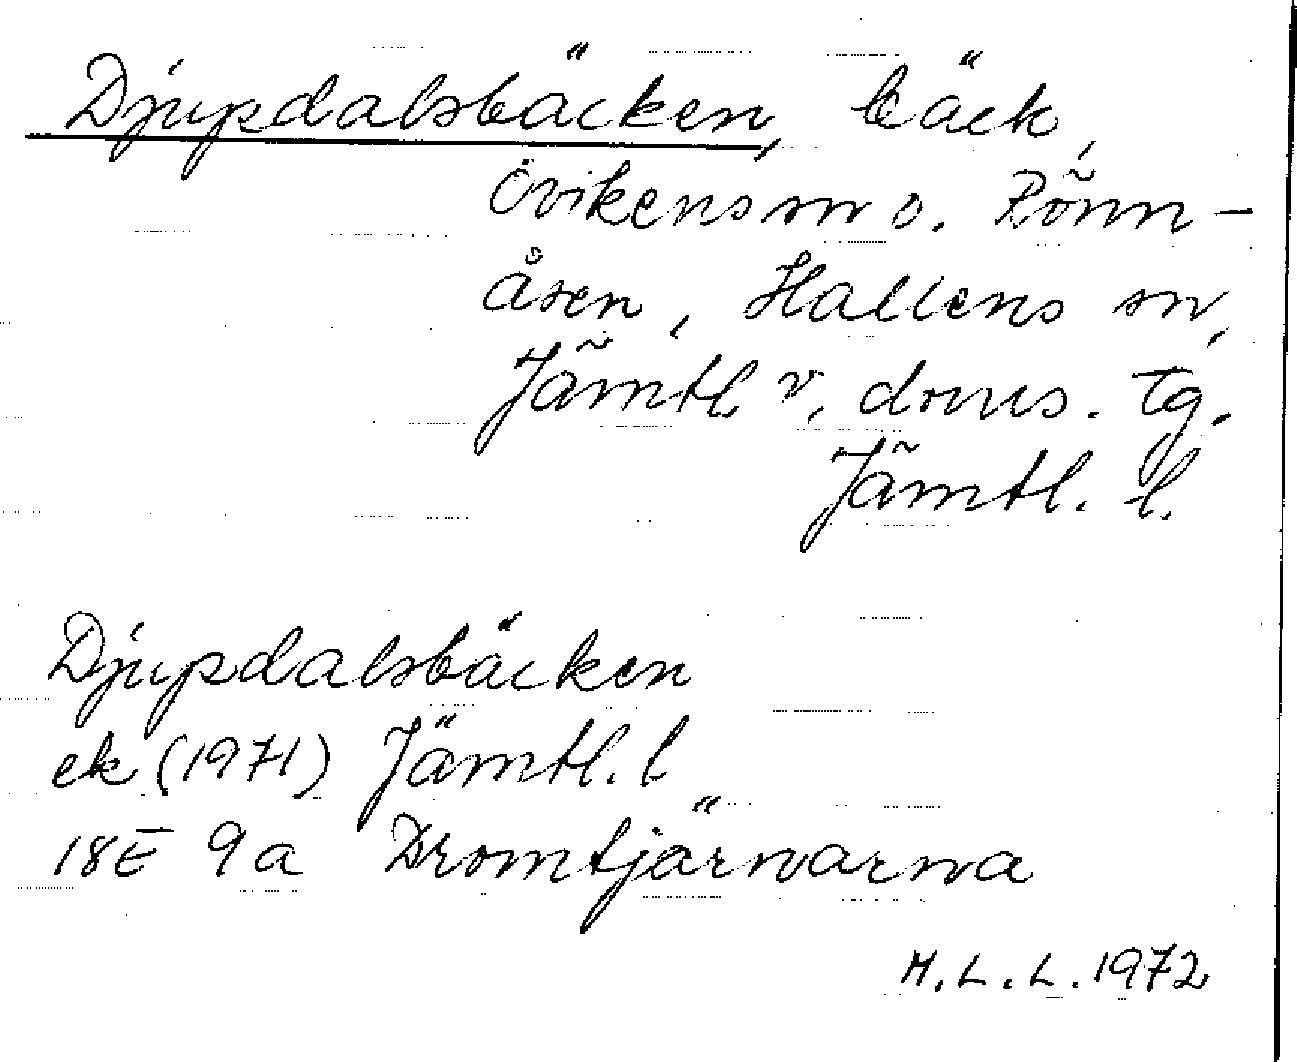 Djupdalsbäcken, bäck,
Ovikens sn o. Rönn-
åsen, Hallens sn,
Jämtl. v. doms. tg.
Jämtl. l.
Djupdalsbäcken
ek (1971) Jämtl. l
18E 9a Dromtjärnarna
M.L.L. 1972